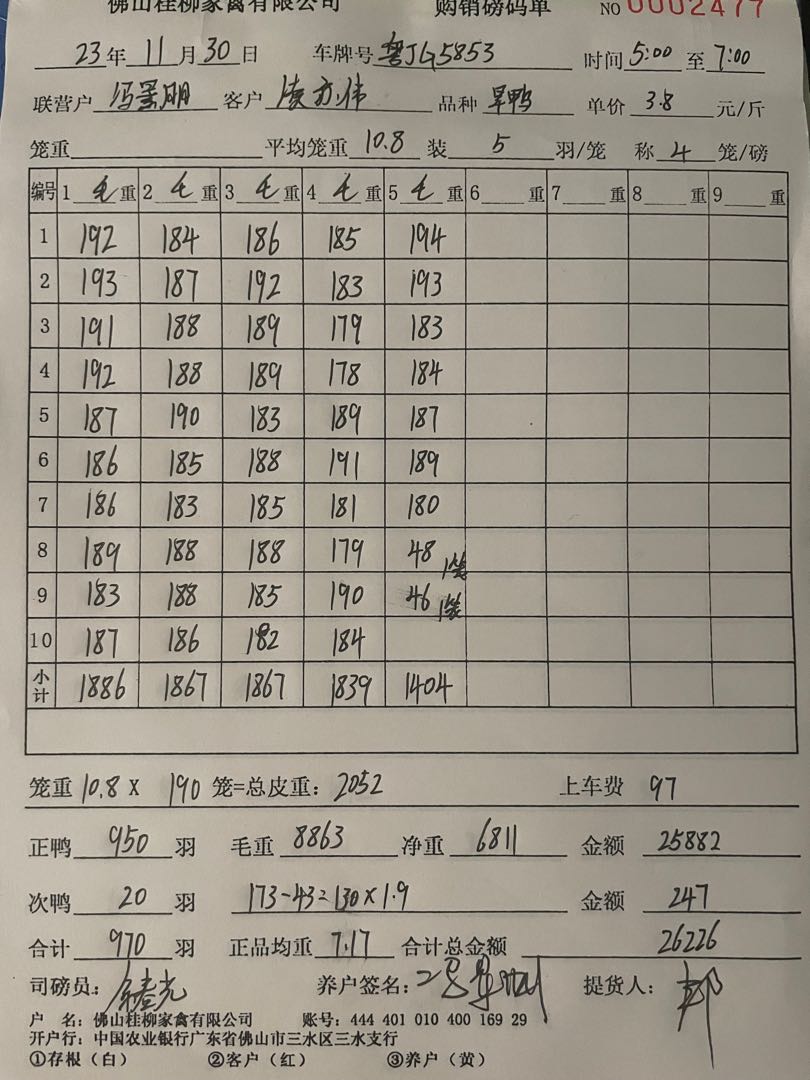 佛山桂柳家禽有限公司 购销磅码单 NO 0002477
23年 11月30日 车牌号 粤JG5853 时间 5:00 至 7:00
联营户 冯景明 客户 品种 旱鸭 单价 3.8 元/斤
笼重 平均笼重 10.8 装 5 羽/笼 称 4 笼/磅
编号 1 毛 重 2 毛 重 3 毛 重 4 毛 重 5 毛 重 6 重 7 重 8 重 9 重
1 192 184 186 185 194
2 193 187 192 183 193
3 191 188 189 179 183
4 192 188 189 178 184
5 187 190 183 189 187
6 186 185 188 191 189
7 186 183 185 181 180
8 189 188 188 179 48
9 183 188 185 190 46
10 187 186 182 184
小计 1886 1867 1867 1839 1404
笼重 10.8 X 190 笼=总皮重: 2052 上车费 97
正鸭 950 羽 毛重 8863 净重 6811 金额 25882
次鸭 20 羽 173-43=130×1.9 金额 247
合计 970 羽 正品均重 7.17 合计总金额 26226
司磅员: 养户签名: 提货人:
户 名: 佛山桂柳家禽有限公司 账号: 444 401 010 400 169 29
开户行: 中国农业银行广东省佛山市三水区三水支行
①存根（白） ②客户（红） ③养户（黄）